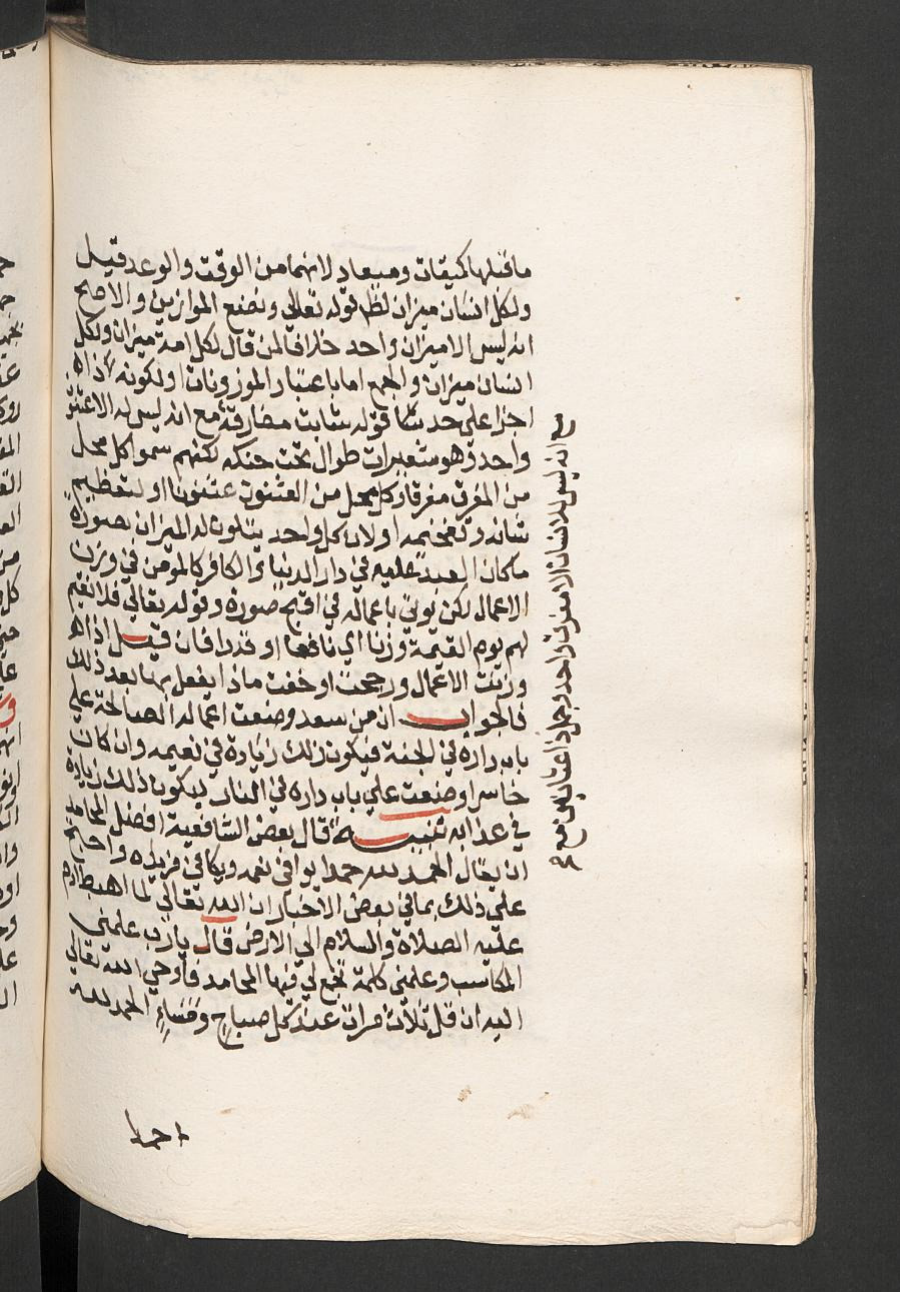 ما قبلها كميقات وميعاد لانهما من الوقت والوعد قيل
ولكل انسان ميزان لظاهر قوله تعالى ونضع الموازين والاصح
انه ليس الا ميزان واحد خلافا لمن قال لكل امة ميزان ولكل
انسان ميزان والجمع اما باعتبار الموزونات او لكونه ذا
اجزا على حد قوله شابت مفارقه مع انه ليس له الا
واحد وهو شعيرات طوال تحت حنكه لكنهم سموا كل محل
من المفرق مفرقا وكل محل من العثنون عثنونا او لتعظيم
شانه وتفخيمه او لان كل واحد يتلون له الميزان بصورة
ما كان العبد عليه في دار الدنيا والكافر كالمؤمن في وزن
الاعمال لكن يوتى باعماله في اقبح صورة وقوله تعالى فلا نقيم
لهم يوم القيمة وزنا اي نافعا او قدرا فان قيل اذا
وزنت الاعمال ورجحت او خفت ماذا يفعل بها بعد ذلك
فالجواب ان من سعد وضعت اعماله الصالحة على
باب داره في الجنة فيكون ذلك زيادة في نعيمه وان كان
خاسرا وضعت على باب داره في النار ليكون ذلك زيادة
في عذابه تنبيه قال بعض الشافعية افضل المحامد
ان يقال الحمد لله حمدا يوافي نعمه ويكافي مزيده واحتج
على ذلك بما في بعض الاخبار ان الله تعالى لما اهبط ادم
عليه الصلاة والسلام الى الارض قال يارب علمني
المكاسب وعلمني كلمة تجمع لي فيها المحامد فاوحى الله تعالى
اليه ان قل ثلاث مرات عند كل صباح ومساء الحمد لله
حمدا
مع انه ليس للانسان الا مفرق واحد وجمل